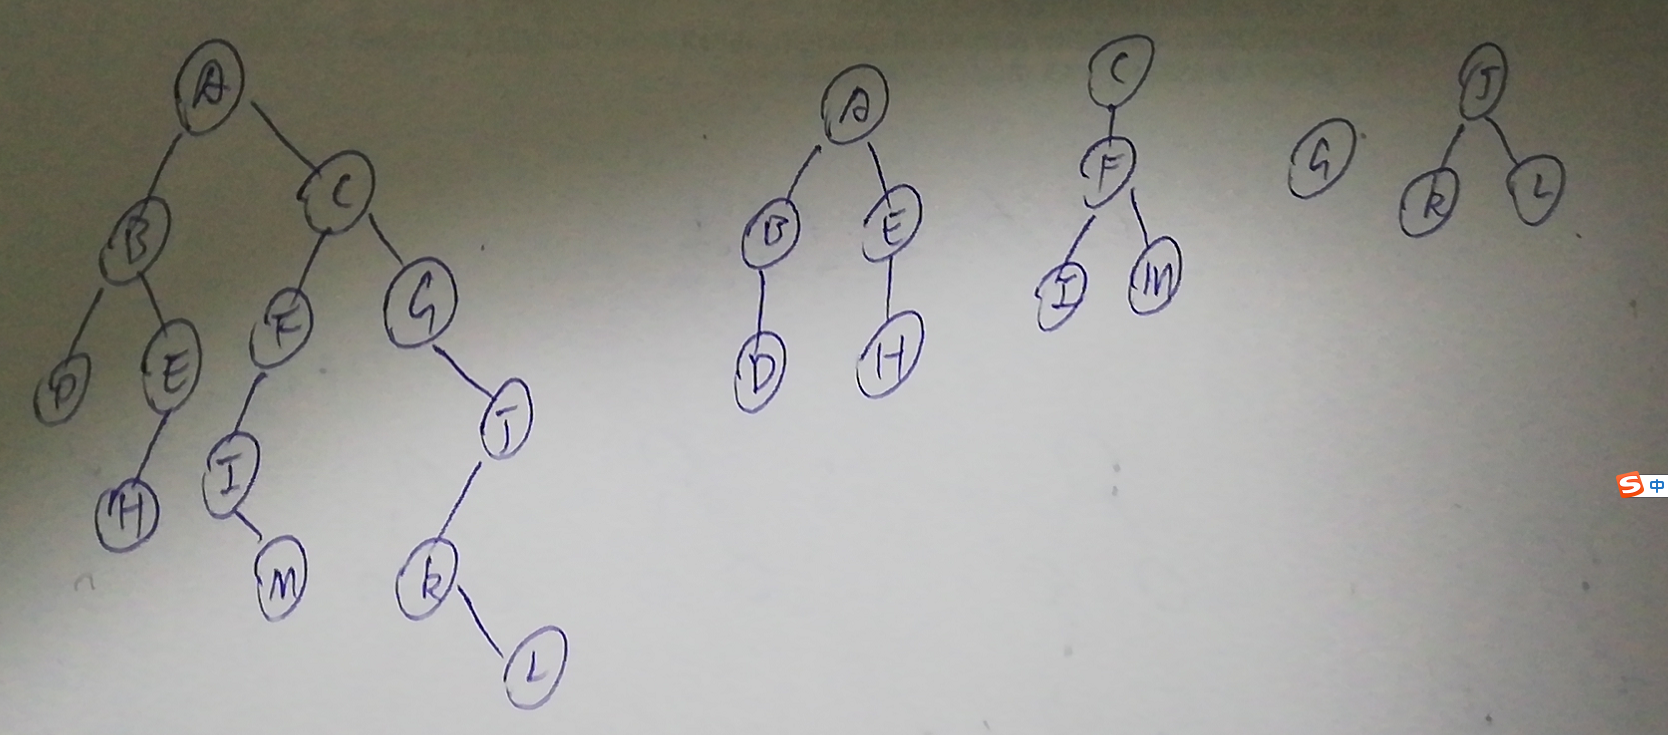 A
B
C
D
E
F
G
H
I
J
M
K
L
A
B
E
D
H
C
F
I
M
G
J
K
L
S 中